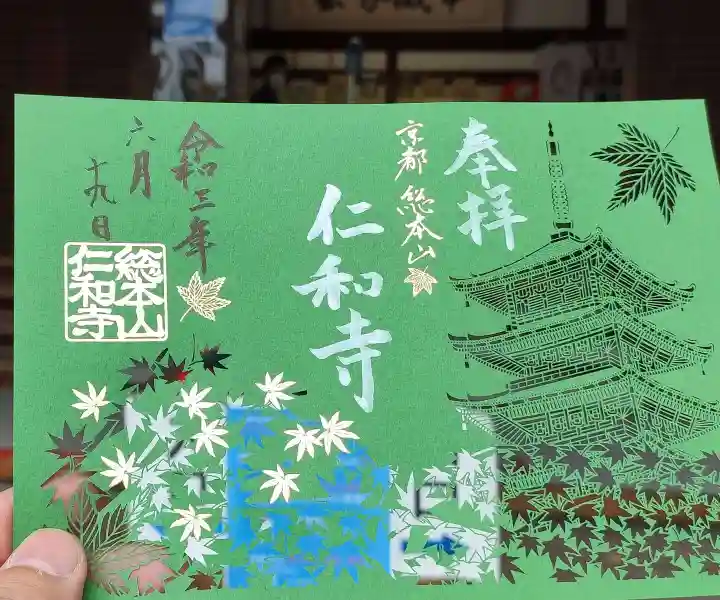 奉拝
京都 総本山
仁和寺
令和三年
六月
十九日
総本山
仁和寺